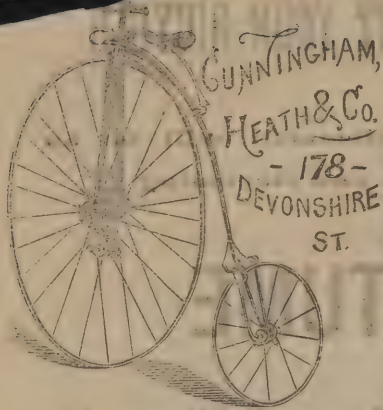 CUNNINGHAM,
HEATH & Co.
- 178 -
DEVONSHIRE
ST.